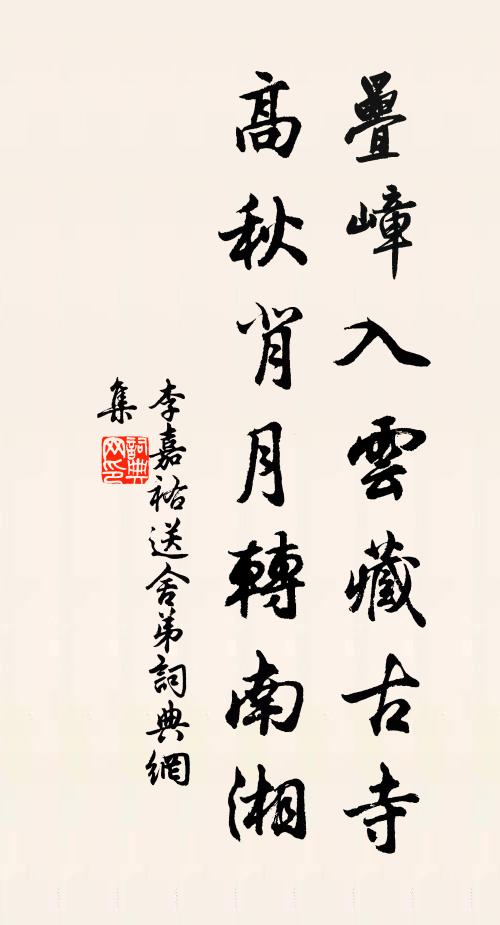 疊嶂入雲藏古寺
高秋背月轉南湘
李嘉祐送舍弟詞典網
集
詞典网印